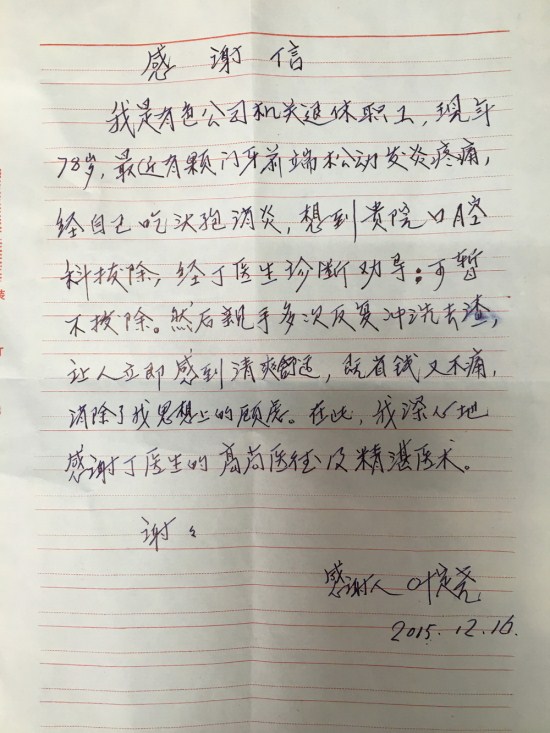 感谢信
我是有色公司机关退休职工，现年
78岁，最近有颗门牙前端松动发炎疼痛，
经自己吃头孢消炎，想到贵院口腔
科拔除，经丁医生诊断劝导：可暂
不拔除。然后亲手多次反复冲洗去渣，
让人立即感到清爽舒适，既省钱又不痛，
消除了我思想上的顾虑。在此，我深心地
感谢丁医生的高尚医德及精湛医术。
谢々
感谢人 叶定尧
2015.12.16.